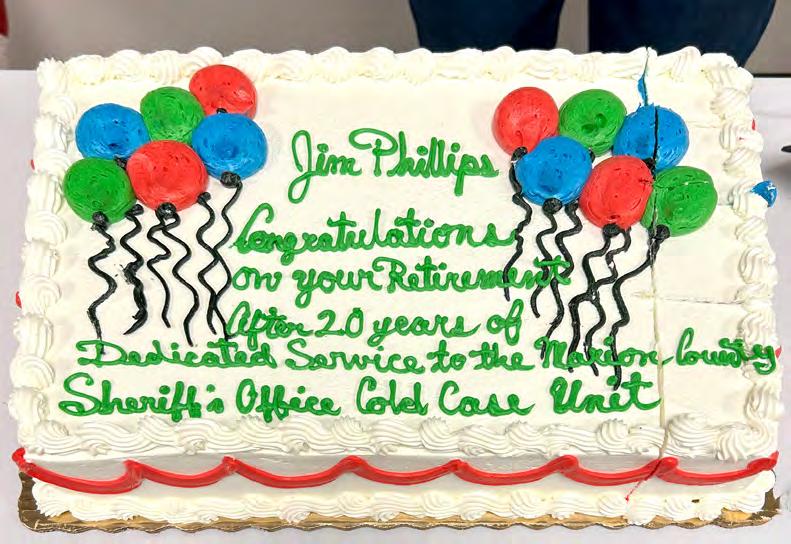 Jim Phillips
Congratulations
on your Retirement
After 20 years of
Dedicated Service to the Marion County
Sheriff's Office Cold Case Unit